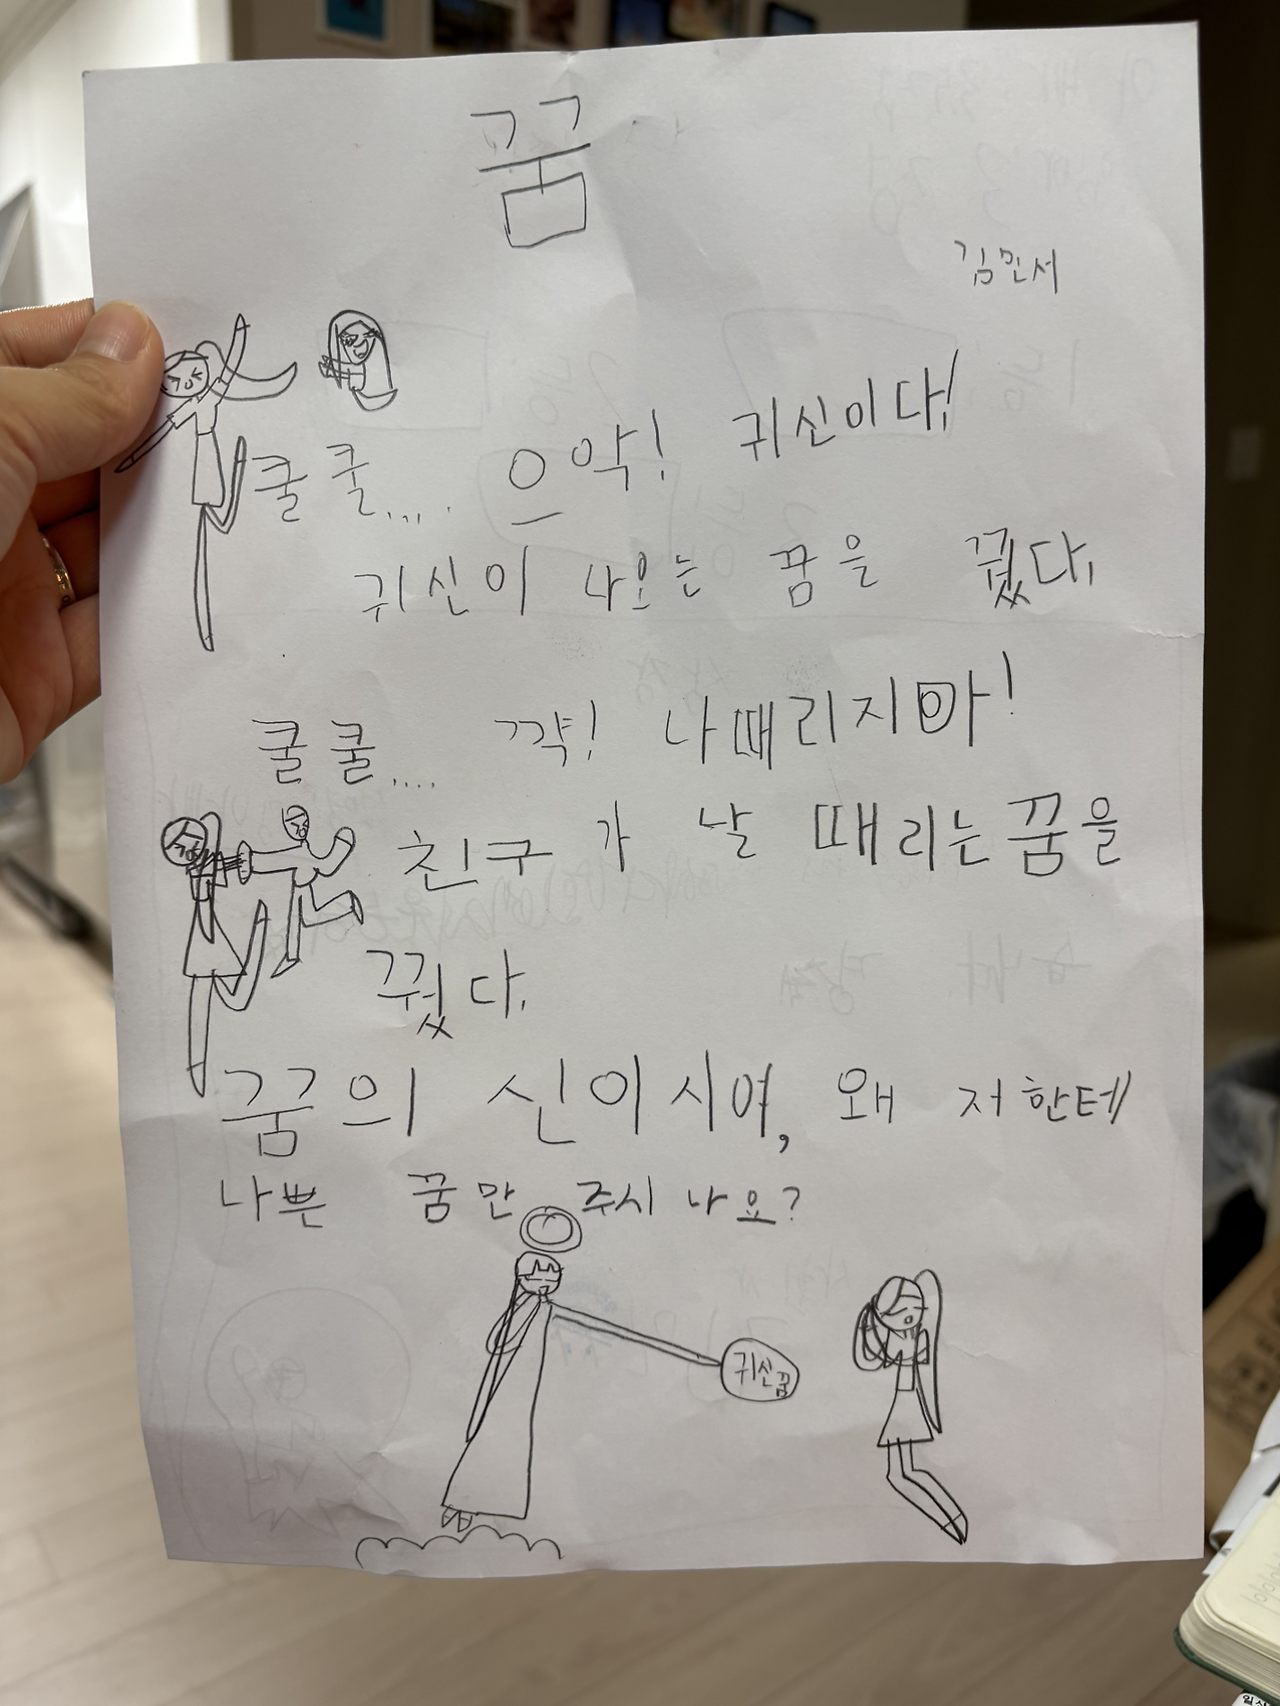 꿈
김민서
쿨쿨.... 으악! 귀신이다!
귀신이 나오는 꿈을 꿨다.
쿨쿨.... 꺅! 나때리지마!
친구가 날 때리는 꿈을
꿨다.
꿈의 신이시여, 왜 저한테
나쁜 꿈만 주시나요?
귀신꿈